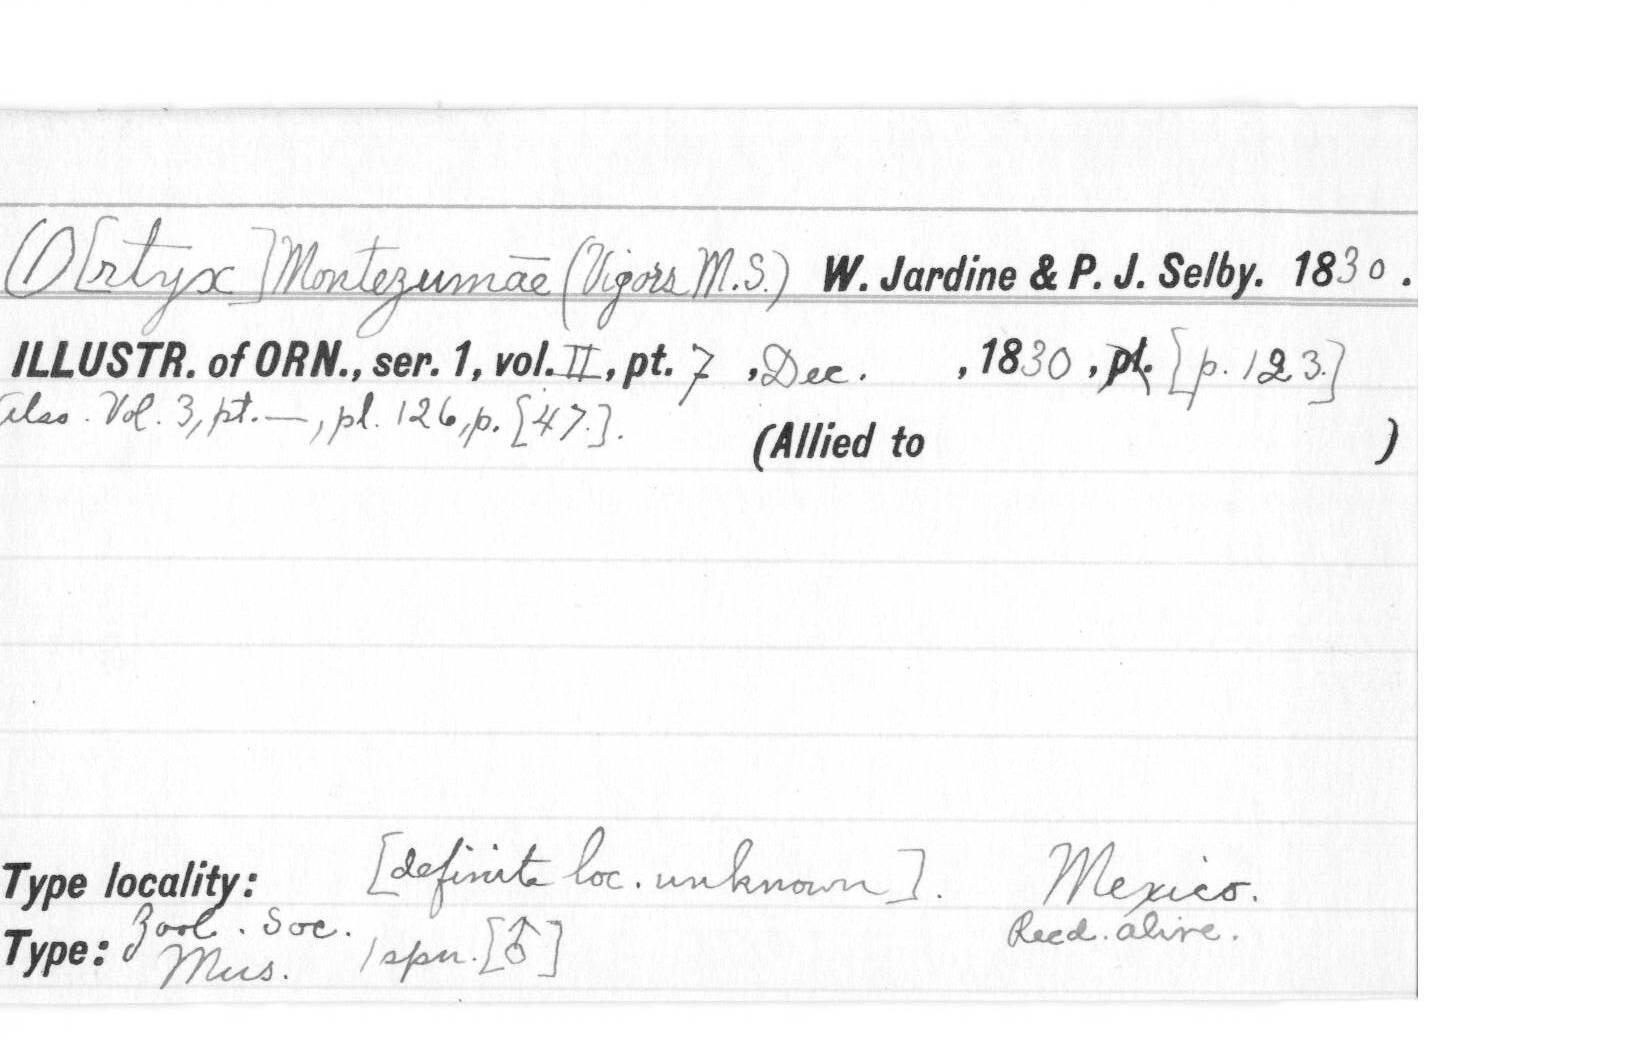 O[rtyx] Montezumæ (Vigors M.S.) W. Jardine & P. J. Selby. 1830.
ILLUSTR. of ORN., ser. 1, vol. II, pt. 7, Dec., 1830, pt. [p. 123.]
Also. Vol. 3, pt. —, pl. 126, p. [47.].
(Allied to )
Type locality: [definite loc. unknown]. Mexico.
Recd. alive.
Type: Zool. Soc. Mus. 1 spn. [♂]